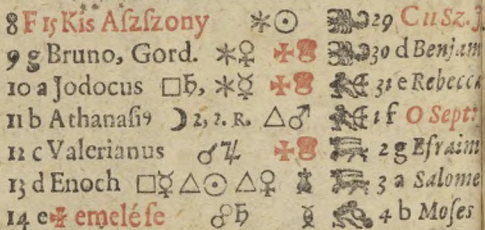 8 F 15 Kis Aſzſzony ⚹☉ 29 C 11 Sz. J.
9 g Bruno, Gord. ⚹♀ ✠ 30 d Benjam
10 a Jodocus □♄, ⚹☿ ✠ 31 e Rebecca
11 b Athanaſi9 ☽ 2, 2. R. △♂ 1 f O Sept:
12 c Valerianus ☌♃ ✠ 2 g Efraim
13 d Enoch □☿ △☉ △♀ 3 a Salome
14 e ✠ emeléſe ☍♄ 4 b Moſes